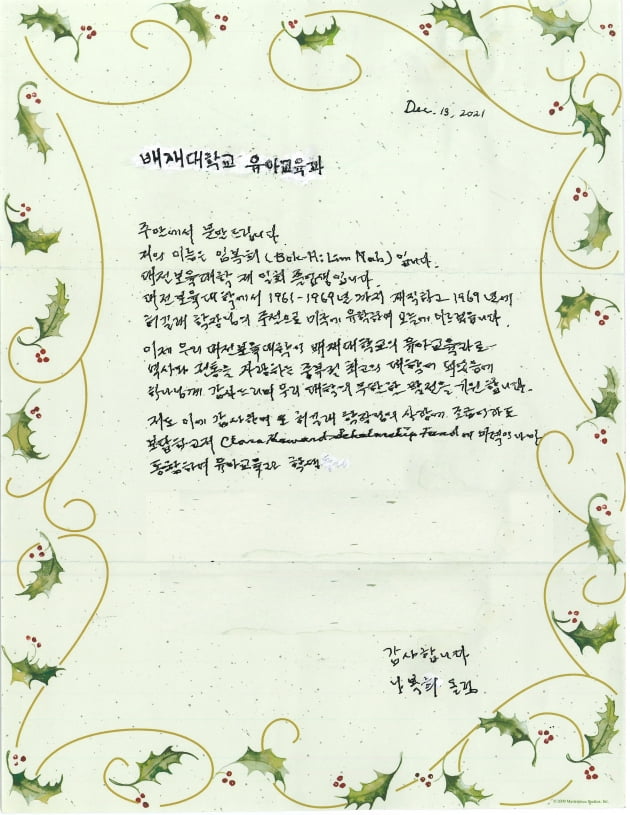 Dec. 13, 2021
배재대학교 유아교육과
주안에서 문안드립니다
저의 이름은 임복희 (Bok-Hi Lim Nah) 입니다.
대전보육대학 제 일회 졸업생입니다.
대전보육대학에서 1961-1969년 까지 재직하고 1969년에
허길래 학장님의 주선으로 미국에 유학하여 오늘에 이르렀습니다.
이제 우리 대전보육대학이 배재대학교의 유아교육과로
역사와 전통을 자랑하는 중부권 최고의 대학이 되었음에
하나님께 감사드리며 우리 대학의 무한한 발전을 기원합니다.
저도 이에 감사하며 또 허길래 학장님의 사랑에 조금이라도
보답하고저 Clara Howard Scholarship Fund에 미력이나마
동참하며 유아교육과 학생
감사합니다
나복희 드림
© 2009 Masterpiece Studios, Inc.